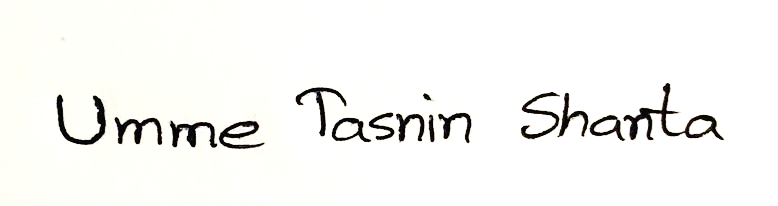 Umme Tasnin Shanta